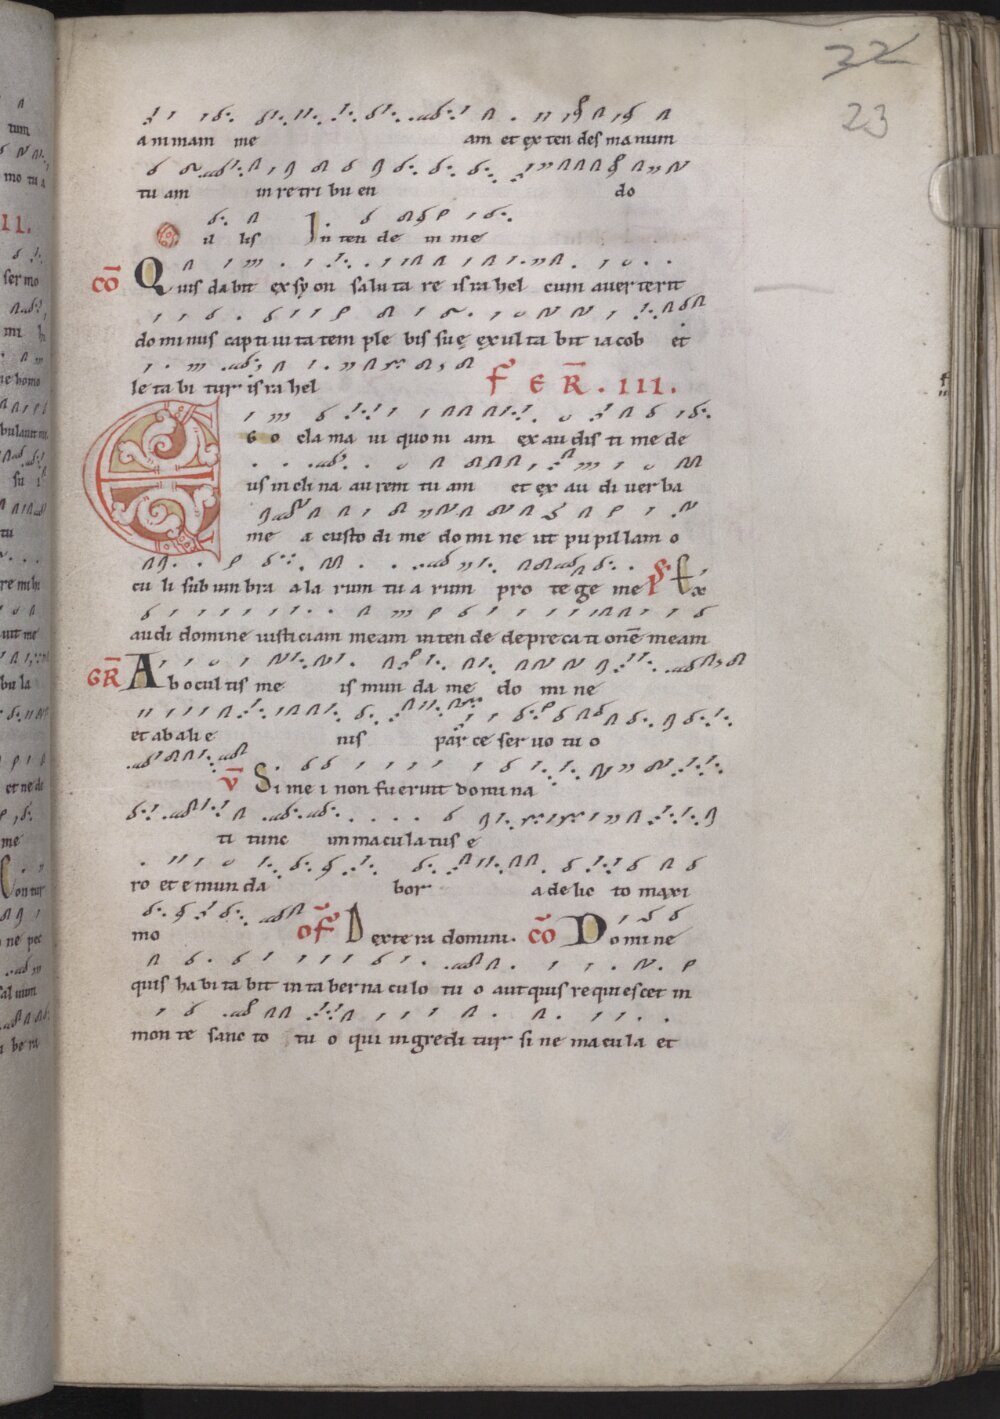 32
23
animam me am et extendes manum
tuam in retribuendo
illis Intende in me
CO Quis dabit ex syon salutare israhel cum averterit
dominus captivitatem plebis suę exultabit iacob et
letabitur israhel
FER. III.
Ego clamavi quoniam exaudisti me de
us inclina aurem tuam et exaudi verba
mea custodi me domine ut pupillam o
culi sub umbra alarum tuarum protege me Ps. Ex
audi domine iusticiam meam intende deprecationē meam
GR Ab ocultis meis munda me domine
et ab alienis parce servo tuo
V Si mei non fuerint domina
ti tunc immaculatus e
ro et emundabor a delicto maxi
mo OF Dextera domini. CO Domine
quis habitabit in tabernaculo tuo aut quis requiescet in
monte sancto tuo qui ingreditur sine macula et